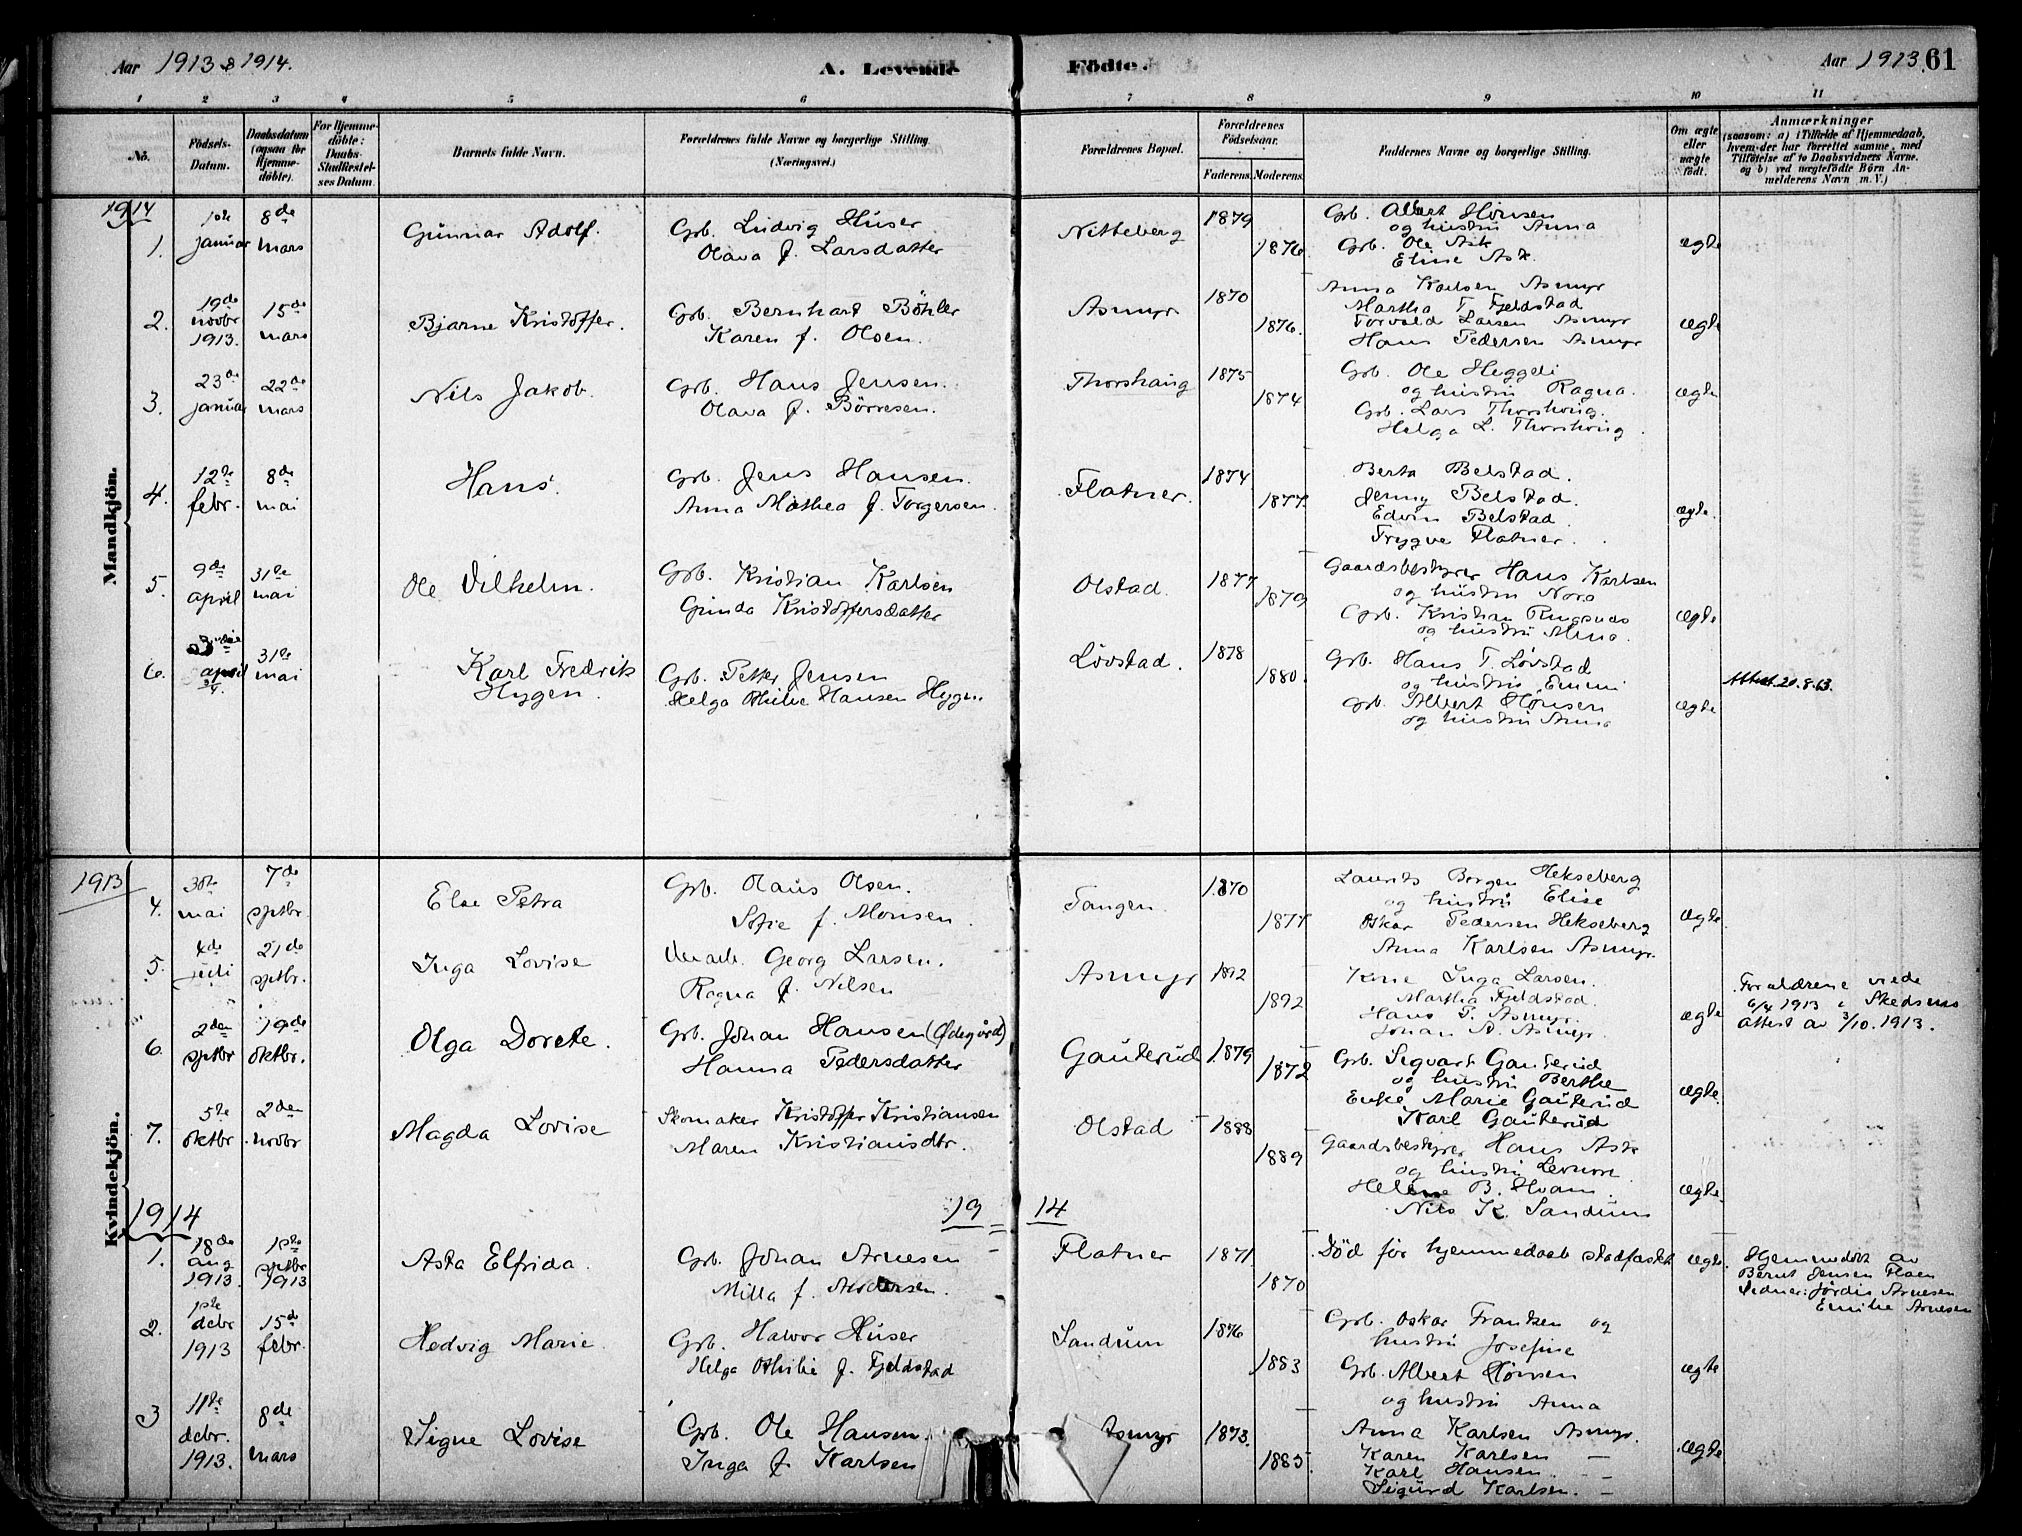 Aar 1913 & 1914.
A. Levende Födte.
Aar 1913. 61
1 2 3 4 5 6 7 8 9 10 11
No.
Födsels-Datum.
Daabsdatum (ogsaa for Hjemme-döbte).
For Hjemme-döbte: Daabs-Stadfæstel-ses Datum.
Barnets fulde Navn.
Forældrenes fulde Navne og borgerlige Stilling (Næringsvei.)
Forældrenes Bopæl.
Forældrenes Födselsaar.
Faderens. Moderens.
Faddernes Navne og borgerlige Stilling.
Om ægte eller uægte födt.
Anmærkninger
(saasom: a) i Tilfælde af Hjemmedaab, hvem der har forrettet samme, med Tilföielse af to Daabsvidners Navne. og b) ved uægtefödte Börn An-melderens Navn m. V.)
Mandkjön.
1914
1. 1ste januar 8de mars
Gunnar Adolf.
Grb. Ludvig Huser
Olava f. Larsdatter
Nitteberg 1879 1876.
Grb. Albert Hønsen
og hustru Anna
Grb. Ole Ask
Eline Ask.
ægte
2. 19de novbr 1913. 15de mars
Bjarne Kristoffer.
Grb. Bernhart Böhler
Karen f. Olsen.
Asmyr 1870 1876.
Anna Karlsen Asmyr
Martha T. Fjeldstad
Torvald Larsen Asmyr
Hans Pedersen Asmyr
ægte
3. 23de januar 22de mars
Nils Jakob.
Grb. Hans Jensen.
Olava f. Börresen.
Thorshaug 1875 1874
Grb. Ole Heggeli
og hustru Ragna.
Grb. Lars Thorshoug.
Helga L. Thorshoug.
ægte
4. 12te febr. 8de mai
Hans.
Grb. Jens Hansen.
Anna Mathea f. Torgersen.
Flatner. 1874 1877.
Berta Belstad.
Jenny Belstad.
Edvin Belstad.
Trygve Flatner.
ægte.
5. 9de april 31te mai
Ole Vilhelm.
Grb. Kristian Karlsen
Gunda Kristoffersdatter
Olstad. 1877 1879
Gaardsbestyrer Hans Karlsen
og hustru Nora
Grb. Kristian Ringsnes
og hustru Alma.
ægte
6. april 31te mai
Karl Fredrik
Hygen.
Grb. Petter Jensen
Helga Othilie Hansen Hygen.
Lövstad. 1878 1880.
Grb. Hans T. Lövstad
og hustru Emmi
Grb. Albert Hönsen
og hustru Anna
ægte
Attest 20.8.63.
Kvindekjön.
1913
4. 30te mai 7de sptbr.
Else Petra
Grb. Olaus Olsen.
Sofie f. Monsen.
Tangen. 1870 1877
Laurits Borgen Hekseberg
og hustru Elise
Oskar Pedersen Hekseberg
Anna Karlsen Asmyr.
ægte
5. 4de juli 21de sptbr.
Inga Lovise
Georg Larsen.
Ragna f. Nilsen
Asmyr 1892 1892
Inga Larsen.
Martha Fjeldstad.
Hans P. Asmyr.
Johan A. Asmyr.
ægte
Forældrene viede
6/4 1913 i Skedsmo
attest av 3/10. 1913.
6. 2den sptbr 19de oktbr.
Olga Dorete.
Grb. Johan Hansen (Ødegård)
Hanna Pedersdatter
Gauterud 1879 1872
Grb. Sigvart Gauterud
og hustru Berthe
Enke Marie Gauterud
Karl Gauterud
ægte.
7. 5te oktbr 2den novbr
Magda Lovise
Skomaker Kristoffer Kristiansen
Maren Kristiansdtr.
Olstad 1888 1889
Gaardsbestyrer Hans Ask
og hustru Leonore
Helene B. Hvam.
Nils K. Sandum
ægte
1914 1914
1. 18de aug 1913. 1ste sptbr 1913
Asta Elfrida.
Grb. Johan Arnesen
Milla f. Andersen.
Flatner 1871 1870
Död för hjemmedaab stadfæstet
ægte.
Hjemmedöbt av
Bernt Jensen Floen
Vidner: Jördis Arnesen
Emilie Arnesen
2. 1ste debr 1913 15de febr.
Hedvig Marie.
Grb. Halvor Huser
Helga Othilie f. Fjeldstad
Sandum 1876 1883
Grb. Oskar Frantsen og
hustru Josefine
Grb. Albert Hönsen
og hustru Anna
ægte
3 11te debr. 1913. 8de mars
Signe Lovise
Grb. Ole Hansen.
Inga f Karlsen
Asmyr 1873. 1885.
Anna Karlsen Asmyr.
Karen Karlsen —
Karl Hansen. —
Sigurd Karlsen. —
ægte